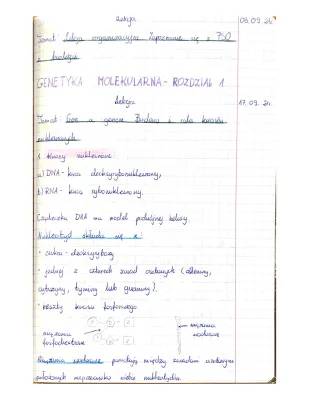 Lekcja 06.09.24.
Temat: Lekcja organizacyjna. Zapoznanie się z PSO
z biologii
GENETYKA MOLEKULARNA - ROZDZIAŁ 1
Lekcja 17.09.24.
Temat: Gen a genom. Budowa i rola kwasów
nukleinowych
1. Kwasy nukleinowe:
a) DNA - kwas deoksyrybonukleinowy,
b) RNA - kwas rybonukleinowy.
Cząsteczka DNA ma model podwójnej helisy.
Nukleotyd składa się z:
• cukru - deoksyrybozy
• jednej z czterech zasad azotowych (adeniny,
cytozyny, tyminy lub guaniny).
• reszty kwasu fosforowego
wiązania
fosfodiestrowe
wiązania
wodorowe
Wiązania wodorowe powstają między zasadami azotowymi
położonych naprzeciwko siebie nukleotydów.